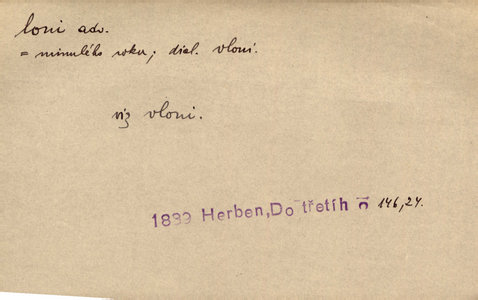 loni adv.
= minulého roku; dial. vloni.
viz vloni.
1889 Herben, Do třetíh o 146,24.